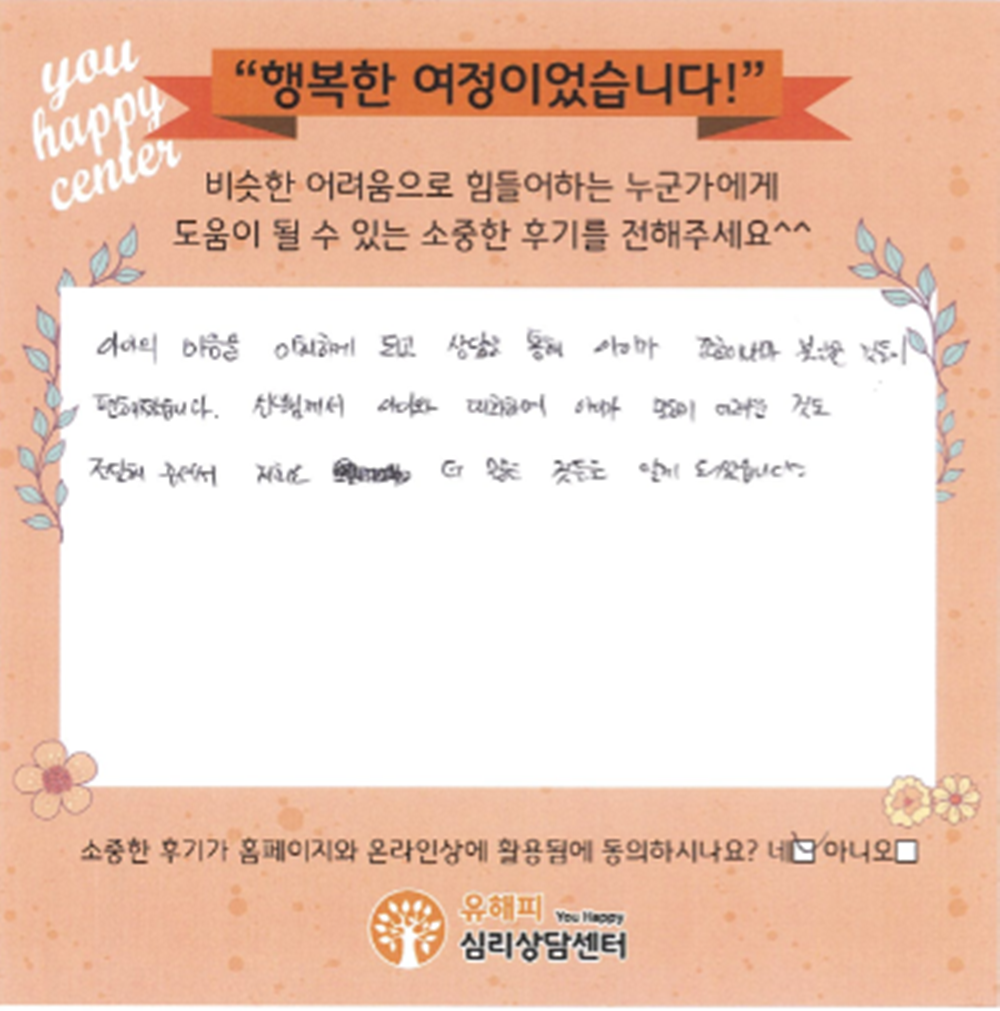 you
happy
center
“행복한 여정이었습니다!”
비슷한 어려움으로 힘들어하는 누군가에게
도움이 될 수 있는 소중한 후기를 전해주세요^^
아이의 마음을 이해하게 되고 상담을 통해 아이가 조금이나마
편해졌습니다. 선생님께서 아이와 대화하며 것도
전달해 주셔서 저희도 더 많은 것들도 알게 되었습니다~
소중한 후기가 홈페이지와 온라인상에 활용됨에 동의하시나요? 네 아니오
유해피 You Happy
심리상담센터